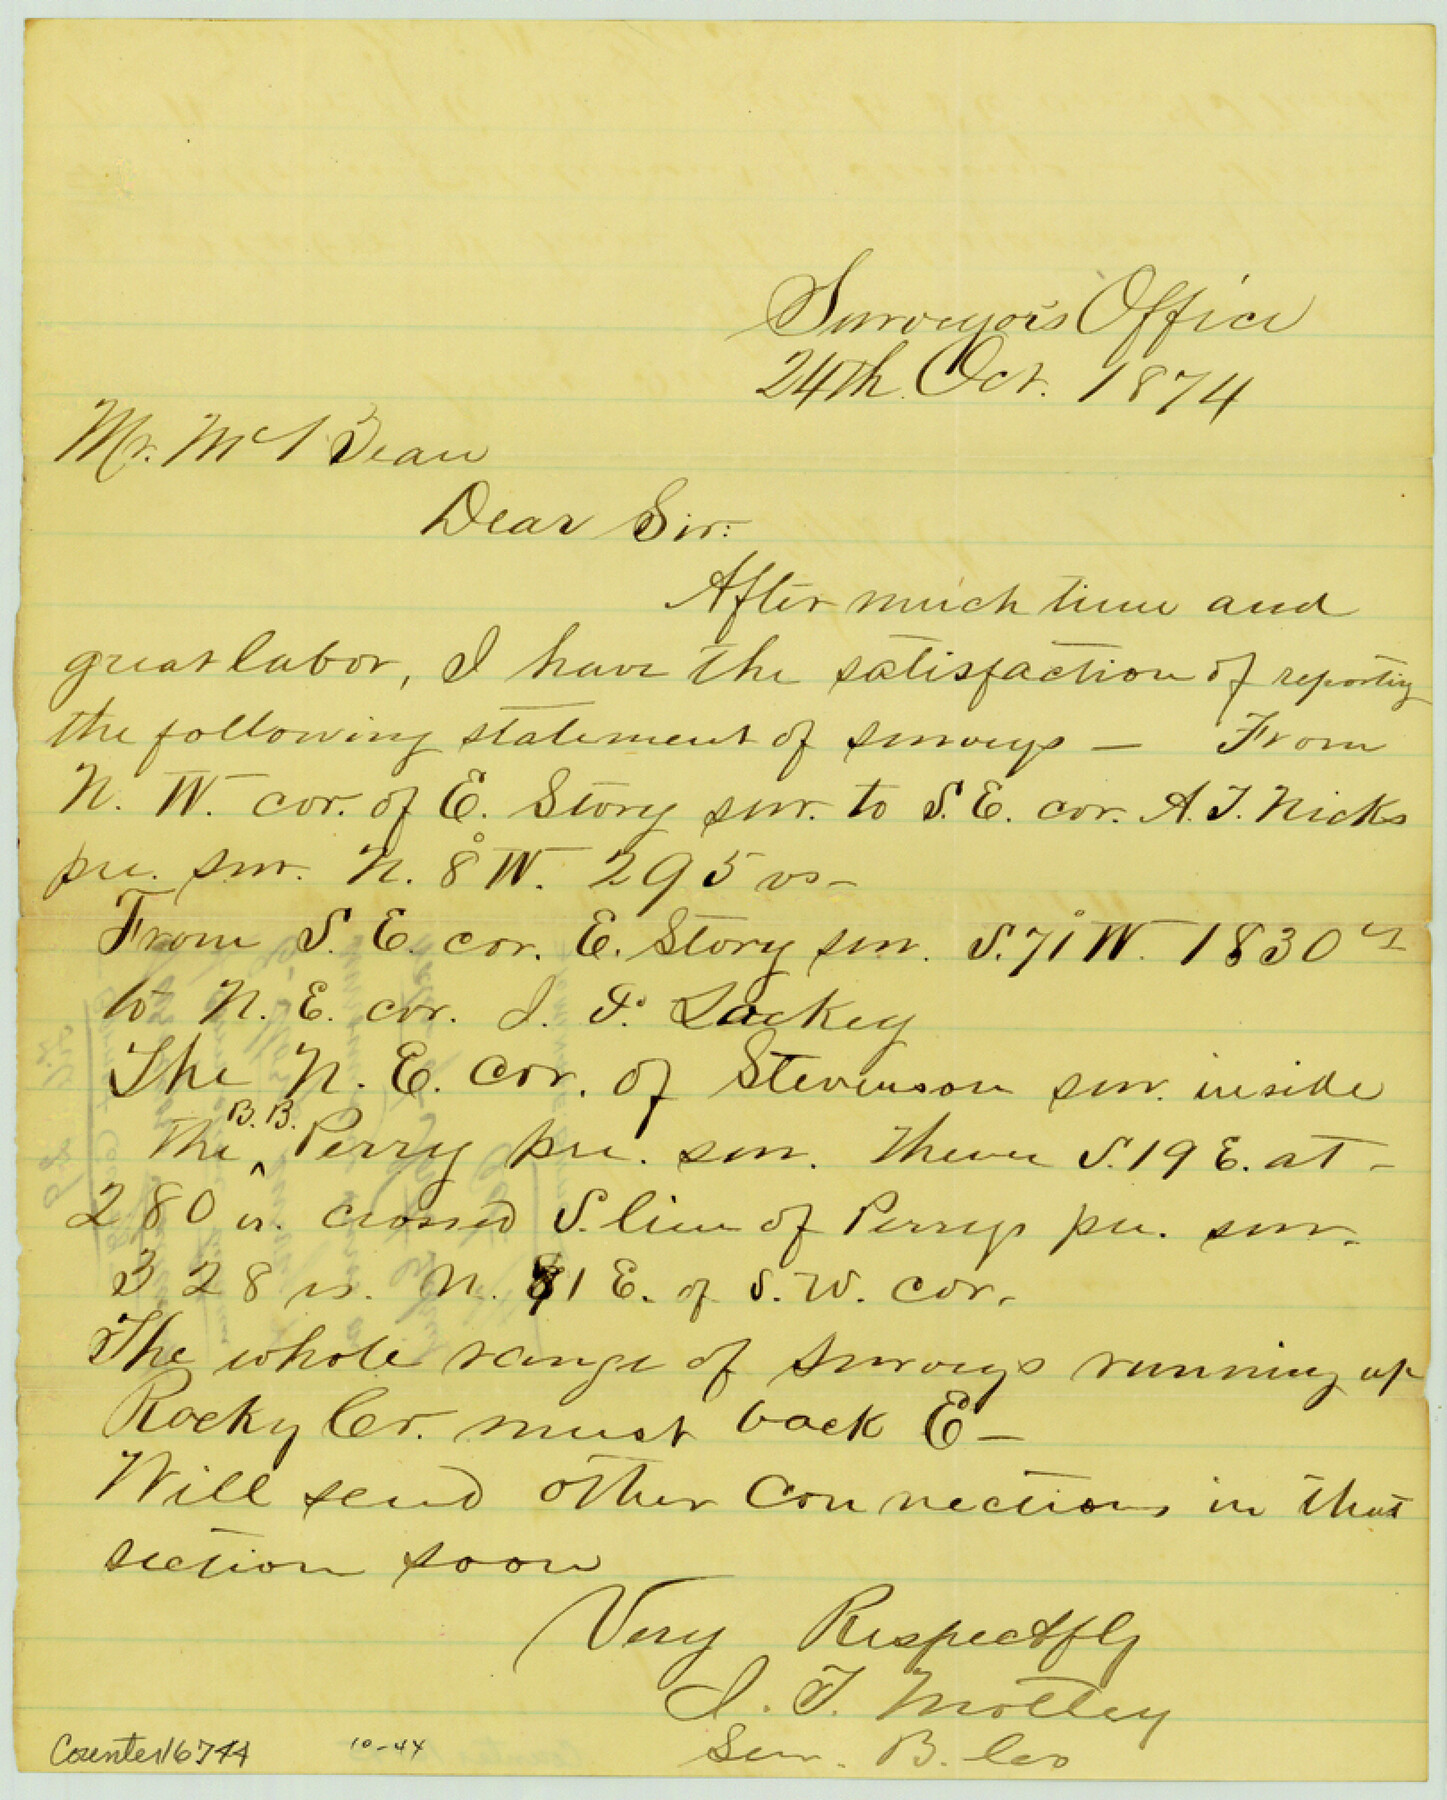 Surveyor's Office
24th. Oct. 1874
Mr. Mc Bean
Dear Sir:
After much time and
great labor, I have the satisfaction of reporting
the following statement of surveys — From
N. W. cor. of E. Story sur. to S. E. cor. A. J. Nicks
pre. sur. N. 8° W. 295 vs —
From S. E. cor. E. Story sur. S. 71° W. 1830 vs
to N. E. cor. J. F. Lackey
The N. E. cor. of Stevenson sur. inside
the B. B. Perry pre. sur. thence S. 19 E. at —
280 vs. crossed S. line of Perrys pre. sur.
328 vs. N. 71 E. of S. W. cor.
The whole range of surveys running up
Rocky Cr. must back E —
Will send other connections in that
section soon
Very Respectfly
J. T. Mottley
Sur. B. Co
Counter 16744
10-44